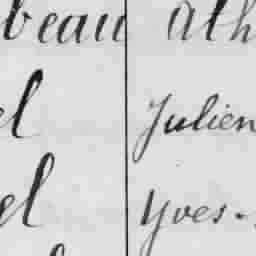 beau ath
el Julien
el Yves.